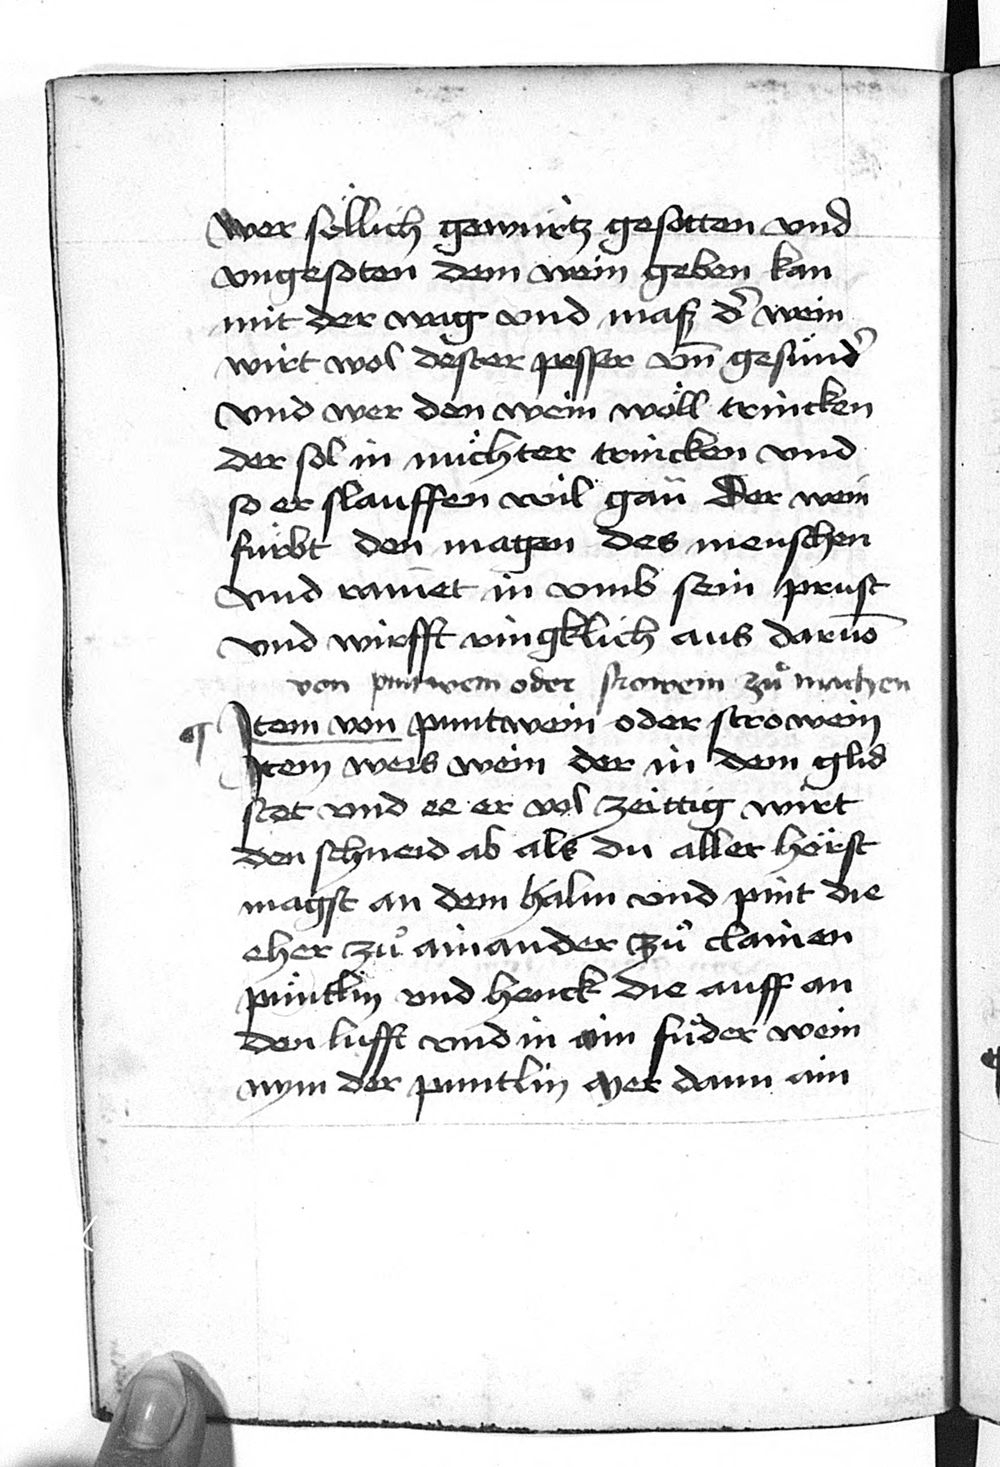 wer söllich gewürtz gesotten vnd
vngesoten dem wein geben kan
mit der wag vnd masz d̕ wein
wirt wol dester pesser vn̄ gesünd̕
vnd wer den wein wöll trincken
der sol in nüchter trincken vnd
so er slauffen wil gan Der wein
fürbt den magen des menschen
vnd ramet in vmb sein prust
vnd wirfft ringklich aus daruō
von puntwein oder strowein zů machen
¶ Item von puntwein oder strowein
Item weis wein der in dem glid
stet vnd ee er vol zeittig wirt
den schneid ab als du aller hörst
magst an dem halm vnd pint die
eher zů ainander zů clainen
püntlin vnd henck die auff an
den lufft vnd in ain fůder wein
nym der puntlin mer dann ain